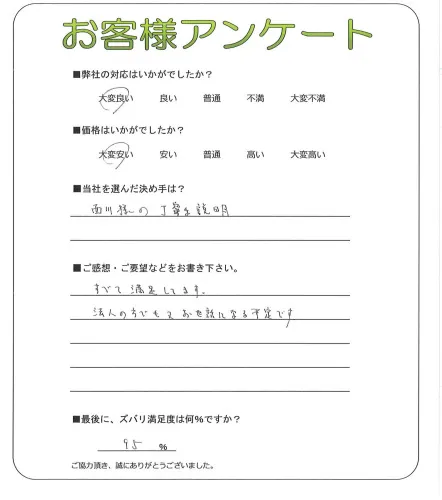 お客様アンケート
■弊社の対応はいかがでしたか？
大変良い 良い 普通 不満 大変不満
■価格はいかがでしたか？
大変安い 安い 普通 高い 大変高い
■当社を選んだ決め手は？
西川様の丁寧な説明
■ご感想・ご要望などをお書き下さい。
すべて満足してます。
法人の方でもお世話になる予定です
■最後に、ズバリ満足度は何%ですか？
95 %
ご協力頂き、誠にありがとうございました。